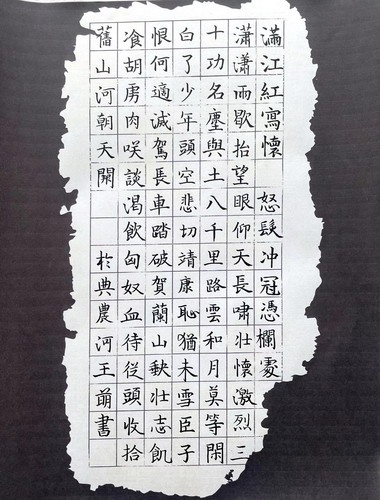 滿江紅寫懷　怒髮冲冠憑欄處
瀟瀟雨歇抬望眼仰天長嘯壯懷激烈三
十功名塵與土八千里路雲和月莫等閑
白了少年頭空悲切靖康恥猶未雪臣子
恨何適滅駕長車踏破賀蘭山缺壯志飢
飡胡虜肉咲談渴飲匈奴血待從頭收拾
舊山河朝天闕　於典農河王萌書